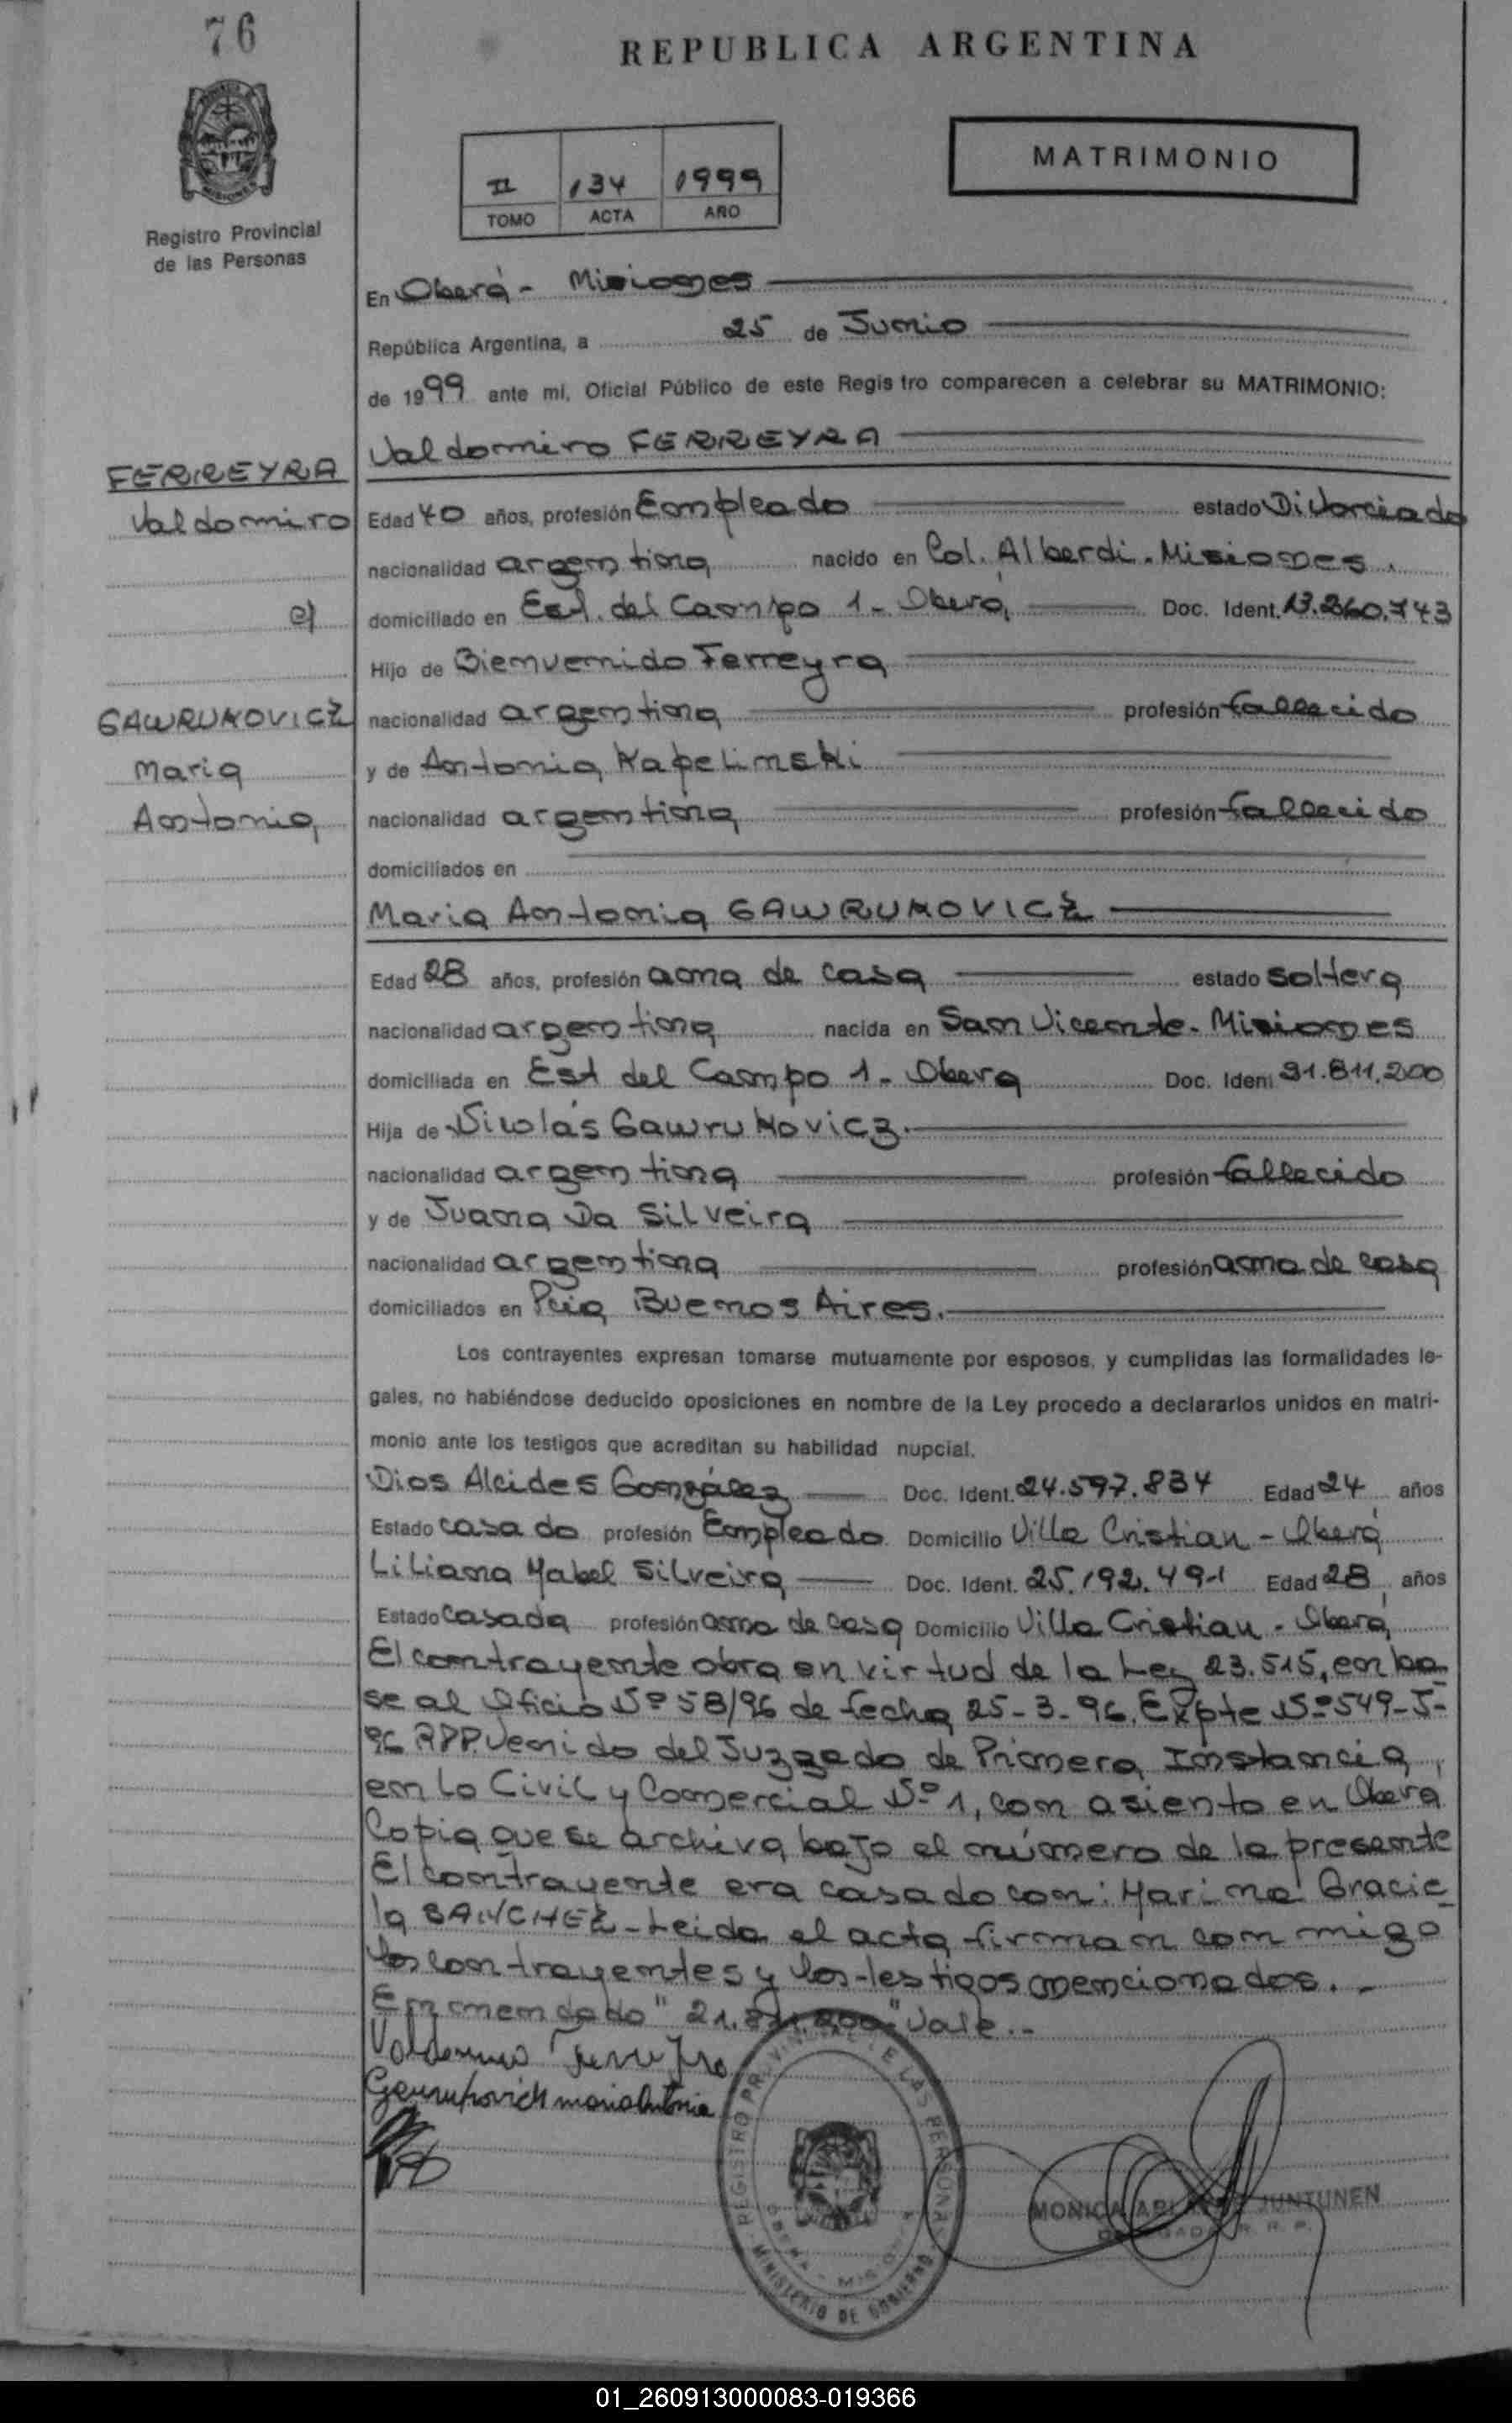 76
REPUBLICA ARGENTINA
MATRIMONIO
II 134 1999
TOMO ACTA AÑO
Registro Provincial
de las Personas
En Oberá - Misiones
República Argentina, a 25 de Junio
de 1999 ante mi, Oficial Público de este Regis tro comparecen a celebrar su MATRIMONIO:
Valdomiro FERREYRA
FERREYRA
Valdomiro
c/
GAWRUKOVICZ
Maria
Antonia
Edad 40 años, profesión Empleado estado Divorciado
nacionalidad argentina nacido en Col. Alberdi - Misiones.
domiciliado en Est. del Campo 1 - Oberá Doc. Ident. 13.260.743
Hijo de Bienvenido Ferreyra
nacionalidad argentina profesión fallecido
y de Antonia Kapelinski
nacionalidad argentina profesión fallecido
domiciliados en
Maria Antonia GAWRUKOVICZ
Edad 28 años, profesión ama de casa estado soltera
nacionalidad argentina nacida en San Vicente - Misiones
domiciliada en Est del Campo 1 - Obera Doc. Iden. 21.811.200
Hija de Nicolás Gawrukovicz.
nacionalidad argentina profesión fallecido
y de Juana Da Silveira
nacionalidad argentina profesión ama de casa
domiciliados en Pcia Buenos Aires.
Los contrayentes expresan tomarse mutuamente por esposos, y cumplidas las formalidades le-
gales, no habiéndose deducido oposiciones en nombre de la Ley procedo a declararlos unidos en matri-
monio ante los testigos que acreditan su habilidad nupcial.
Dios Alcides González Doc. Ident. 24.597.834 Edad 24 años
Estado casado profesión Empleado Domicilio Villa Cristian - Oberá
Liliana Mabel Silveira Doc. Ident. 25.192.491 Edad 28 años
Estado Casada profesión ama de casa Domicilio Villa Cristian - Oberá
El contrayente obra en virtud de la Ley 23.515, en ba
se al Oficio Nº 58/96 de fecha 25-3-96. Expte Nº 549-J-
96 RPP. Venido del Juzgado de Primera Instancia
en lo Civil y Comercial Nº 1, con asiento en Oberá
Copia que se archiva bajo el número de la presente
El contrayente era casado con: Marina Gracie
la SANCHEZ - Leida el acta firman con migo
los contrayentes y los testigos mencionados. -
Enmendado " 21.811.200 " Vale. -
Valdomiro Ferreyra
Gawrukovich maria Antonia
REGISTRO PROVINCIAL DE LAS PERSONAS
OBERA - MISIONES
MINISTERIO DE GOBIERNO
MONICA JUNTUNEN
DELEGADA R. P.
01_260913000083-019366